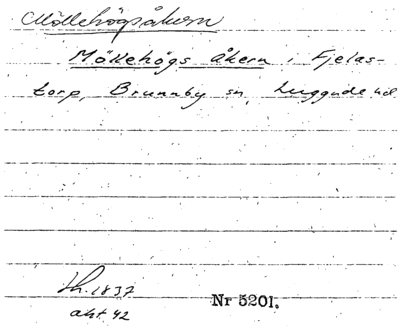 Möllehögsåkern
Möllehögs åkern i Fjelas-
torp, Brunnby sn, Luggude hd
Lh. 1837
akt 42
Nr 5201.